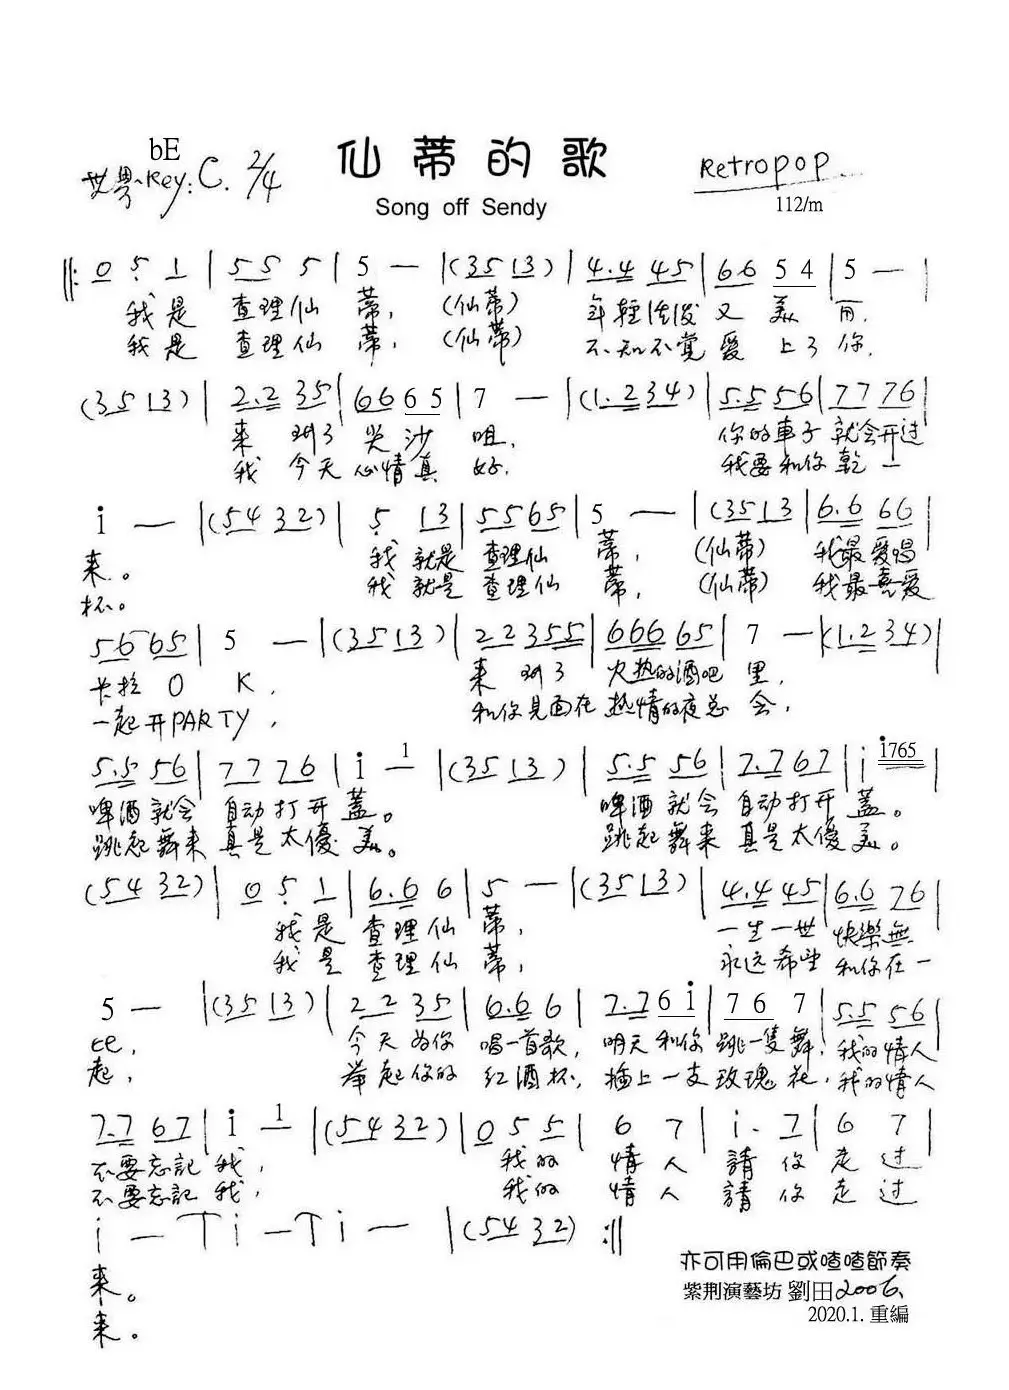 bE
Key: C. 2/4
仙蒂的歌
Song off Sendy
Retropop
112/m
‖: 0 5 1 | 5 5 5 | 5 — | (35 13) | 4.4 45 | 66 54 | 5 — |
我是 查理仙 蒂, (仙蒂) 年輕活潑又美丽,
我是 查理仙 蒂, (仙蒂) 不知不覺愛上了你,
(35 13) | 2.2 35 | 66 65 | 7 — | (1.2 34) | 5.5 56 | 77 76 |
来到了尖沙咀, 你的車子就会开过
我今天心情真好, 我要和你乾一
i — | (54 32) | 5 13 | 55 65 | 5 — | (35 13 | 6.6 66 |
来。 我就是查理仙蒂, (仙蒂) 我最爱唱
杯。 我就是查理仙蒂, (仙蒂) 我最喜爱
56 65 | 5 — | (35 13) | 22 355 | 666 65 | 7 — | (1.2 34) |
卡拉OK, 来到了火热的酒吧里,
一起开PARTY, 和你見面在热情的夜总会,
5.5 56 | 77 76 | i 1 | (35 13) | 5.5 56 | 7.7 67 | i i765 |
啤酒就会自动打开蓋。 啤酒就会自动打开蓋。
跳起舞来真是太優美。 跳起舞来真是太優美。
(54 32) | 0 5 1 | 6.6 6 | 5 — | (35 13) | 4.4 45 | 6.6 76 |
我是查理仙蒂, 一生一世快樂無
我是查理仙蒂, 永远希望和你在一
5 — | (35 13) | 22 35 | 6.6 6 | 7.7 6 i | 76 7 | 5.5 56 |
今天为你唱一首歌, 明天和你跳一隻舞, 我的情人
起, 举起你的红酒杯, 插上一支玫瑰花, 我的情人
7.7 67 | i 1 | (54 32) | 0 5 5 | 6 7 | i. 7 | 6 7 |
不要忘記我, 我的情人請你走过
不要忘記我, 我的情人請你走过
i — | i — | i — | (54 32) :‖
来。
来。
亦可用倫巴或喳喳節奏
紫荆演藝坊 劉田2006.
2020.1. 重編